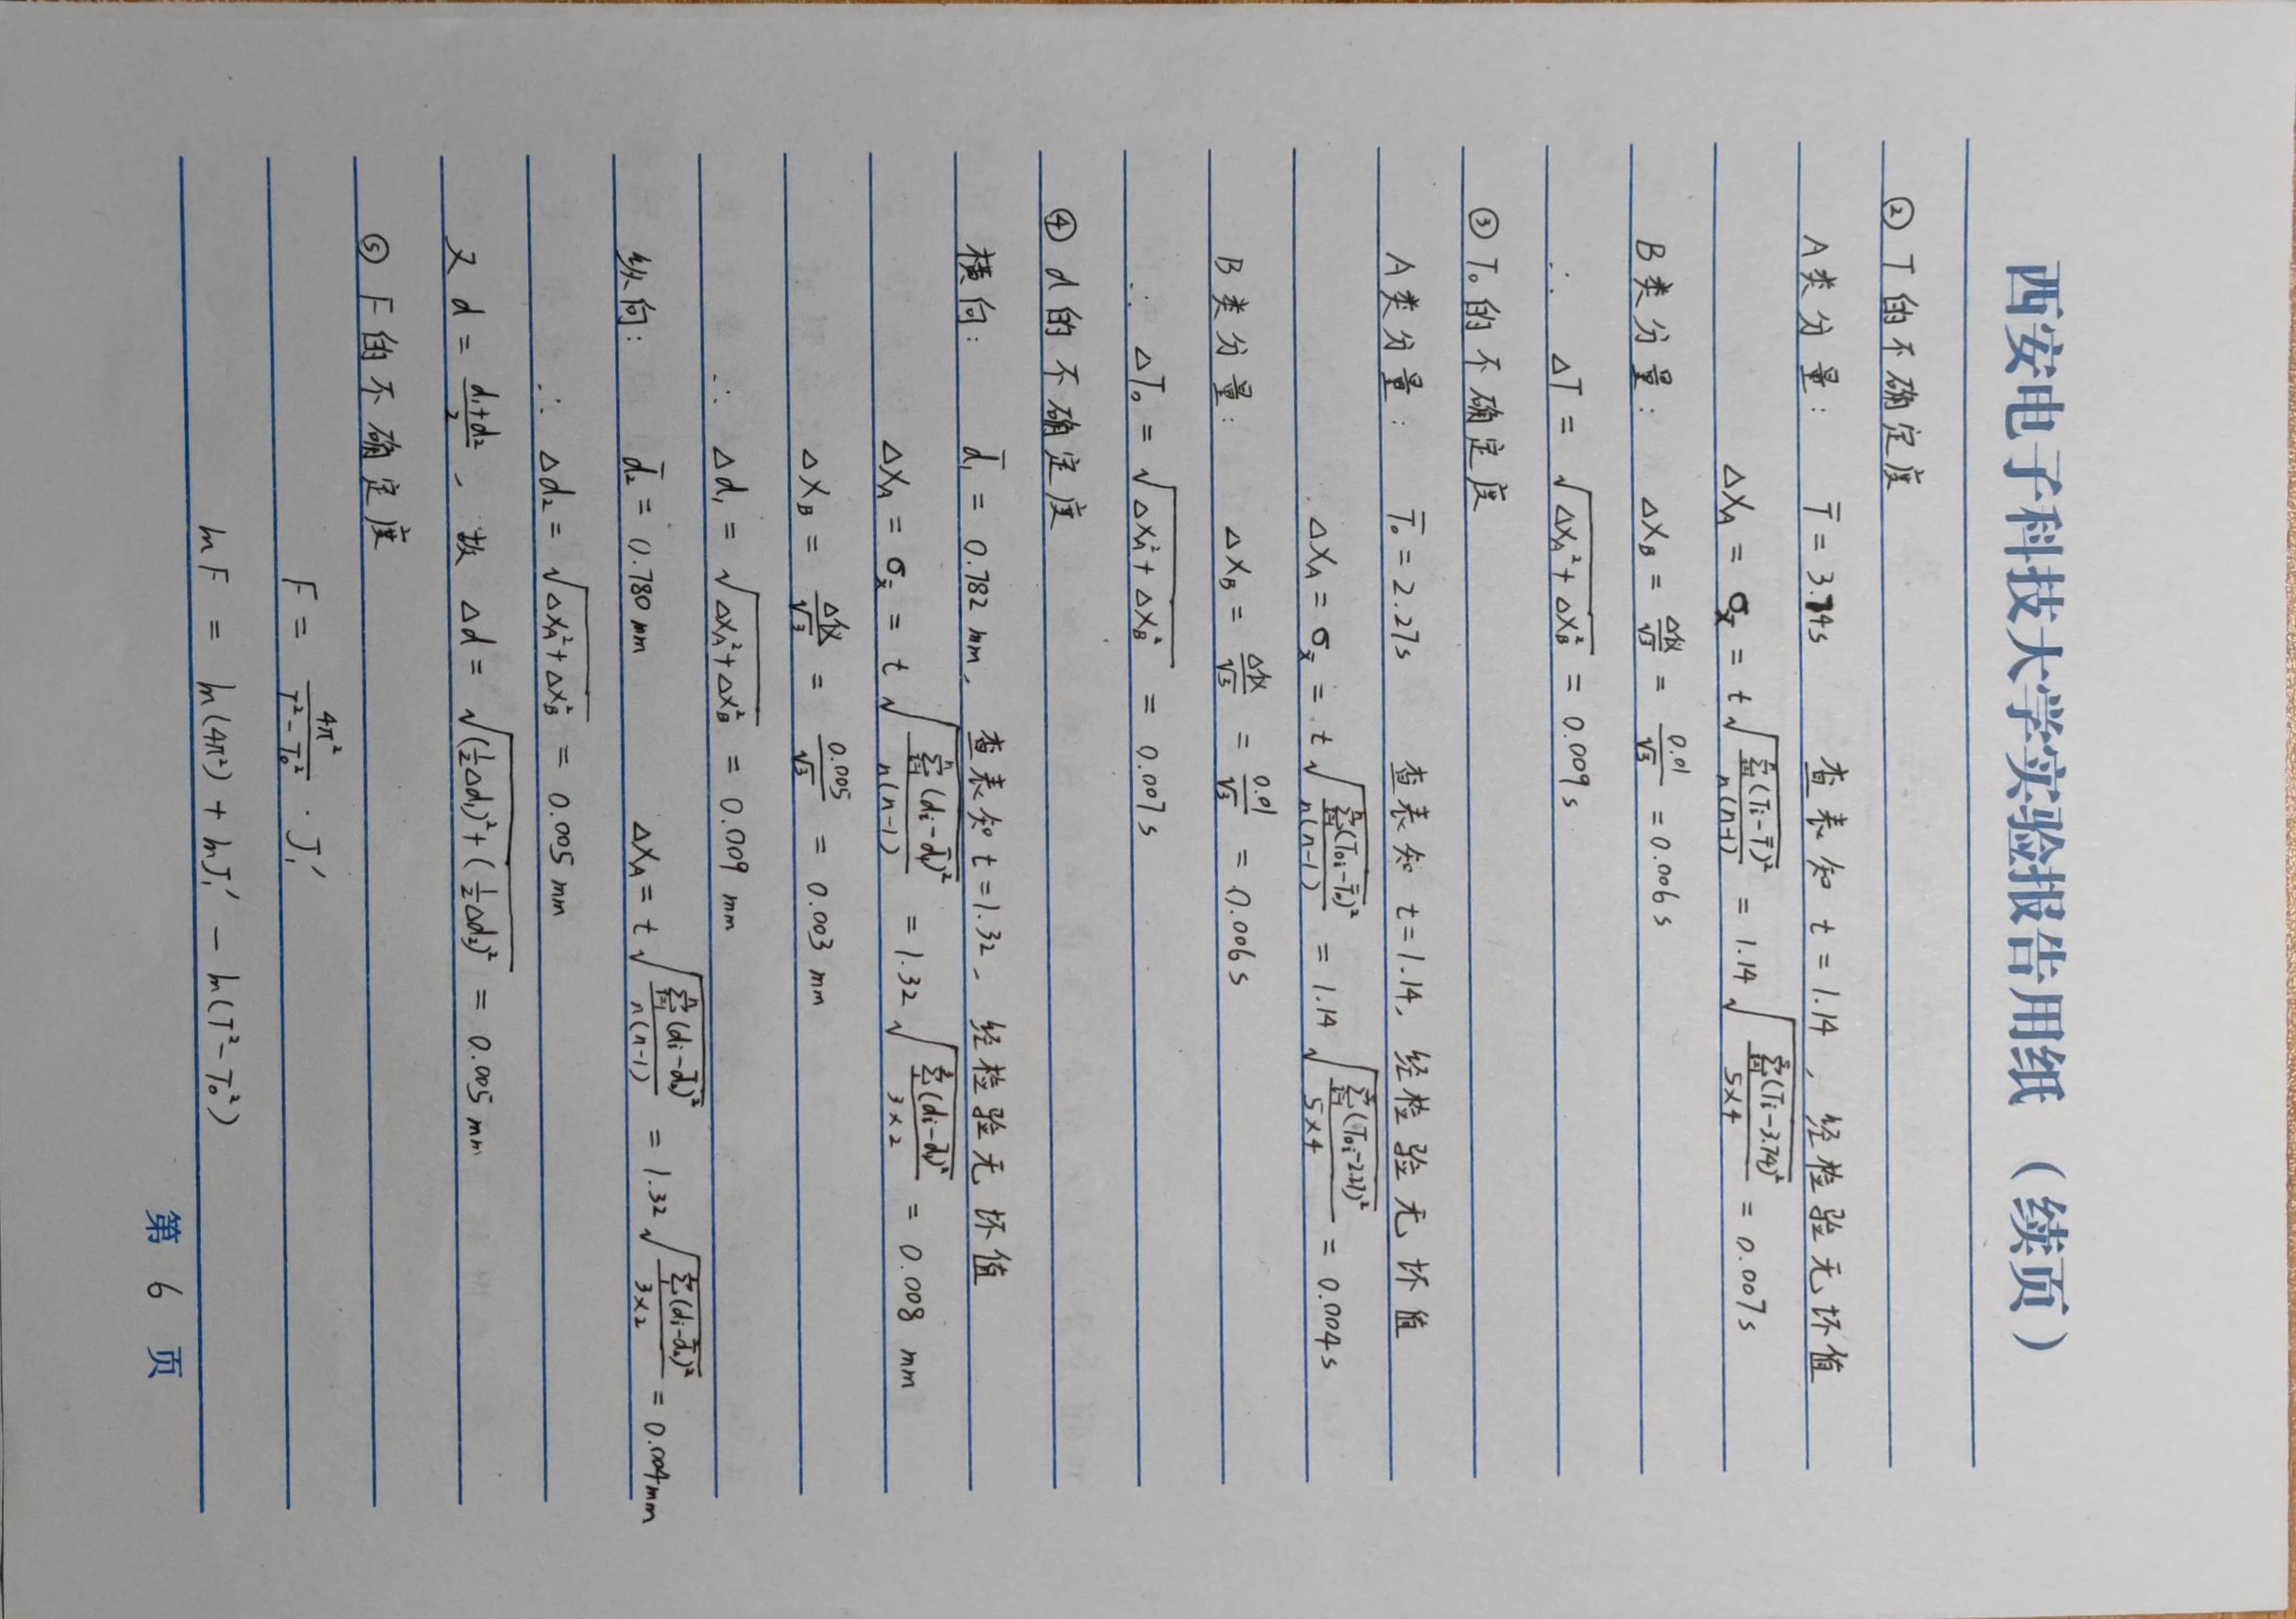 西安电子科技大学实验报告用纸 (续页)
② T的不确定度
A类分量: T̄ = 3.74s 查表知 t = 1.14 , 经检验无坏值
ΔX_A = σ_x̄ = t√(∑_{i=1}^{n}(Ti-T̄)²/n(n-1)) = 1.14√(∑_{i=1}^{5}(Ti-3.74)²/5×4) = 0.007s
B类分量: ΔX_B = Δ仪/√3 = 0.01/√3 = 0.006s
∴ ΔT = √(ΔX_A²+ΔX_B²) = 0.009s
③ T₀的不确定度
A类分量: T̄₀ = 2.27s 查表知 t=1.14, 经检验无坏值
ΔX_A = σ_x̄ = t√(∑_{i=1}^{n}(T₀i-T̄₀)²/n(n-1)) = 1.14√(∑_{i=1}^{5}(T₀i-2.27)²/5×4) = 0.004s
B类分量: ΔX_B = Δ仪/√3 = 0.01/√3 = 0.006s
∴ ΔT₀ = √(ΔX_A²+ΔX_B²) = 0.007s
④ d的不确定度
横向: d̄₁ = 0.782 mm, 查表知 t=1.32, 经检验无坏值
ΔX_A = σ_x̄ = t√(∑_{i=1}^{n}(di-d̄₁)²/n(n-1)) = 1.32√(∑_{1}^{3}(di-d̄₁)²/3×2) = 0.008 mm
ΔX_B = Δ仪/√3 = 0.005/√3 = 0.003 mm
∴ Δd₁ = √(ΔX_A²+ΔX_B²) = 0.009 mm
纵向: d̄₂ = 0.780 mm ΔX_A = t√(∑_{i=1}^{n}(di-d̄₂)²/n(n-1)) = 1.32√(∑_{1}^{3}(di-d̄₂)²/3×2) = 0.004mm
∴ Δd₂ = √(ΔX_A²+ΔX_B²) = 0.005 mm
又 d = (d₁+d₂)/2 , 故 Δd = √((1/2Δd₁)²+(1/2Δd₂)²) = 0.005 mm
⑤ F的不确定度
F = 4π²/(T²-T₀²) · J₁′
lnF = ln(4π²) + lnJ₁′ - ln(T²-T₀²)
第 6 页